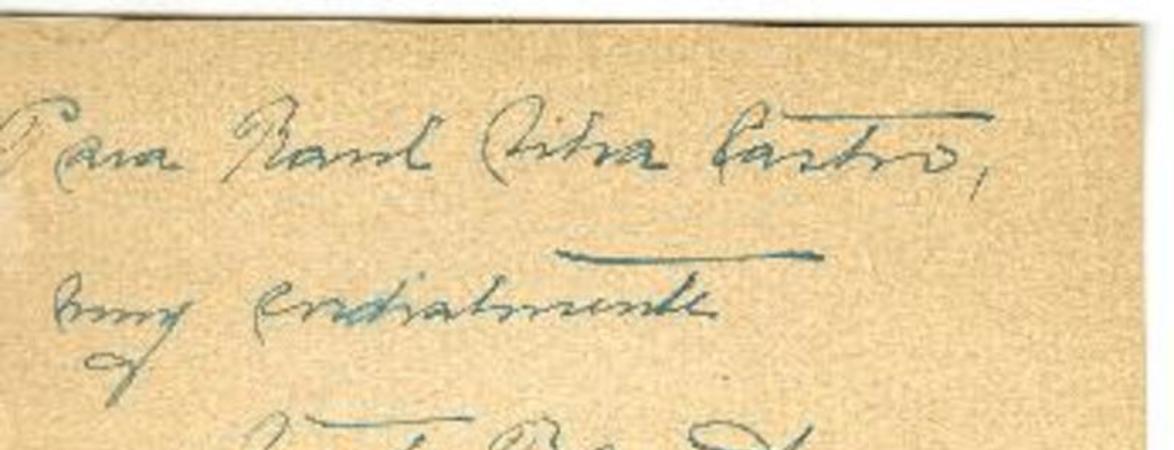 Para Raul Silva Castro,
muy cordialmente